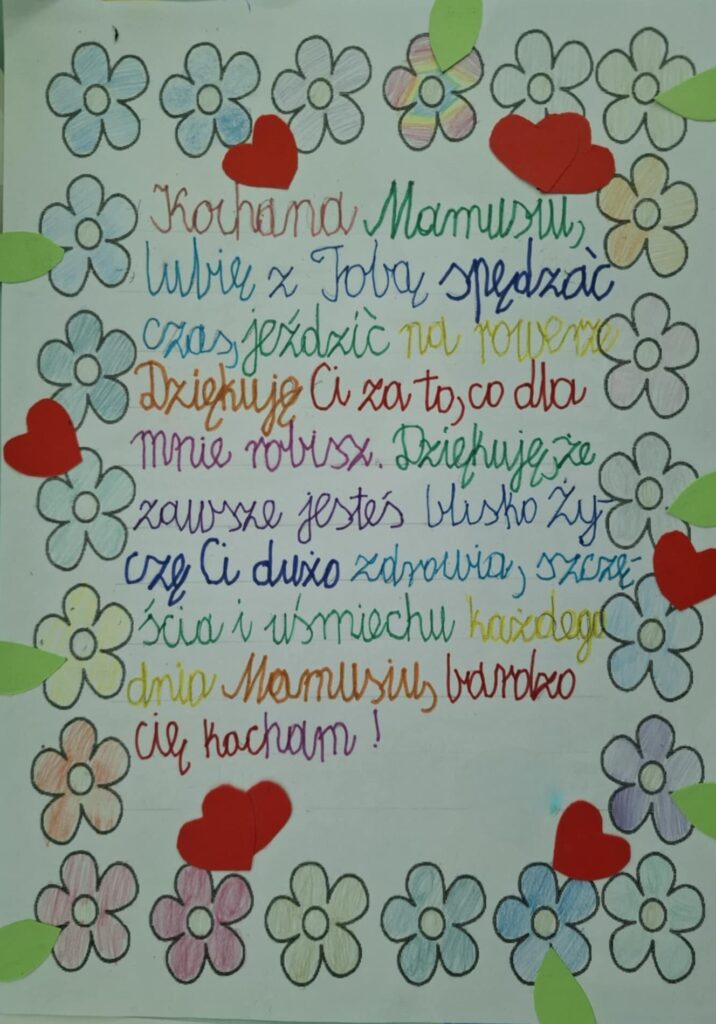 Kochana Mamusiu,
lubię z Tobą spędzać
czas, jeździć na rowerze
Dziękuję Ci za to, co dla
mnie robisz. Dziękuję, że
zawsze jesteś blisko Ży-
czę Ci dużo zdrowia, szczę-
ścia i uśmiechu każdego
dnia Mamusiu, bardzo
cię kocham!